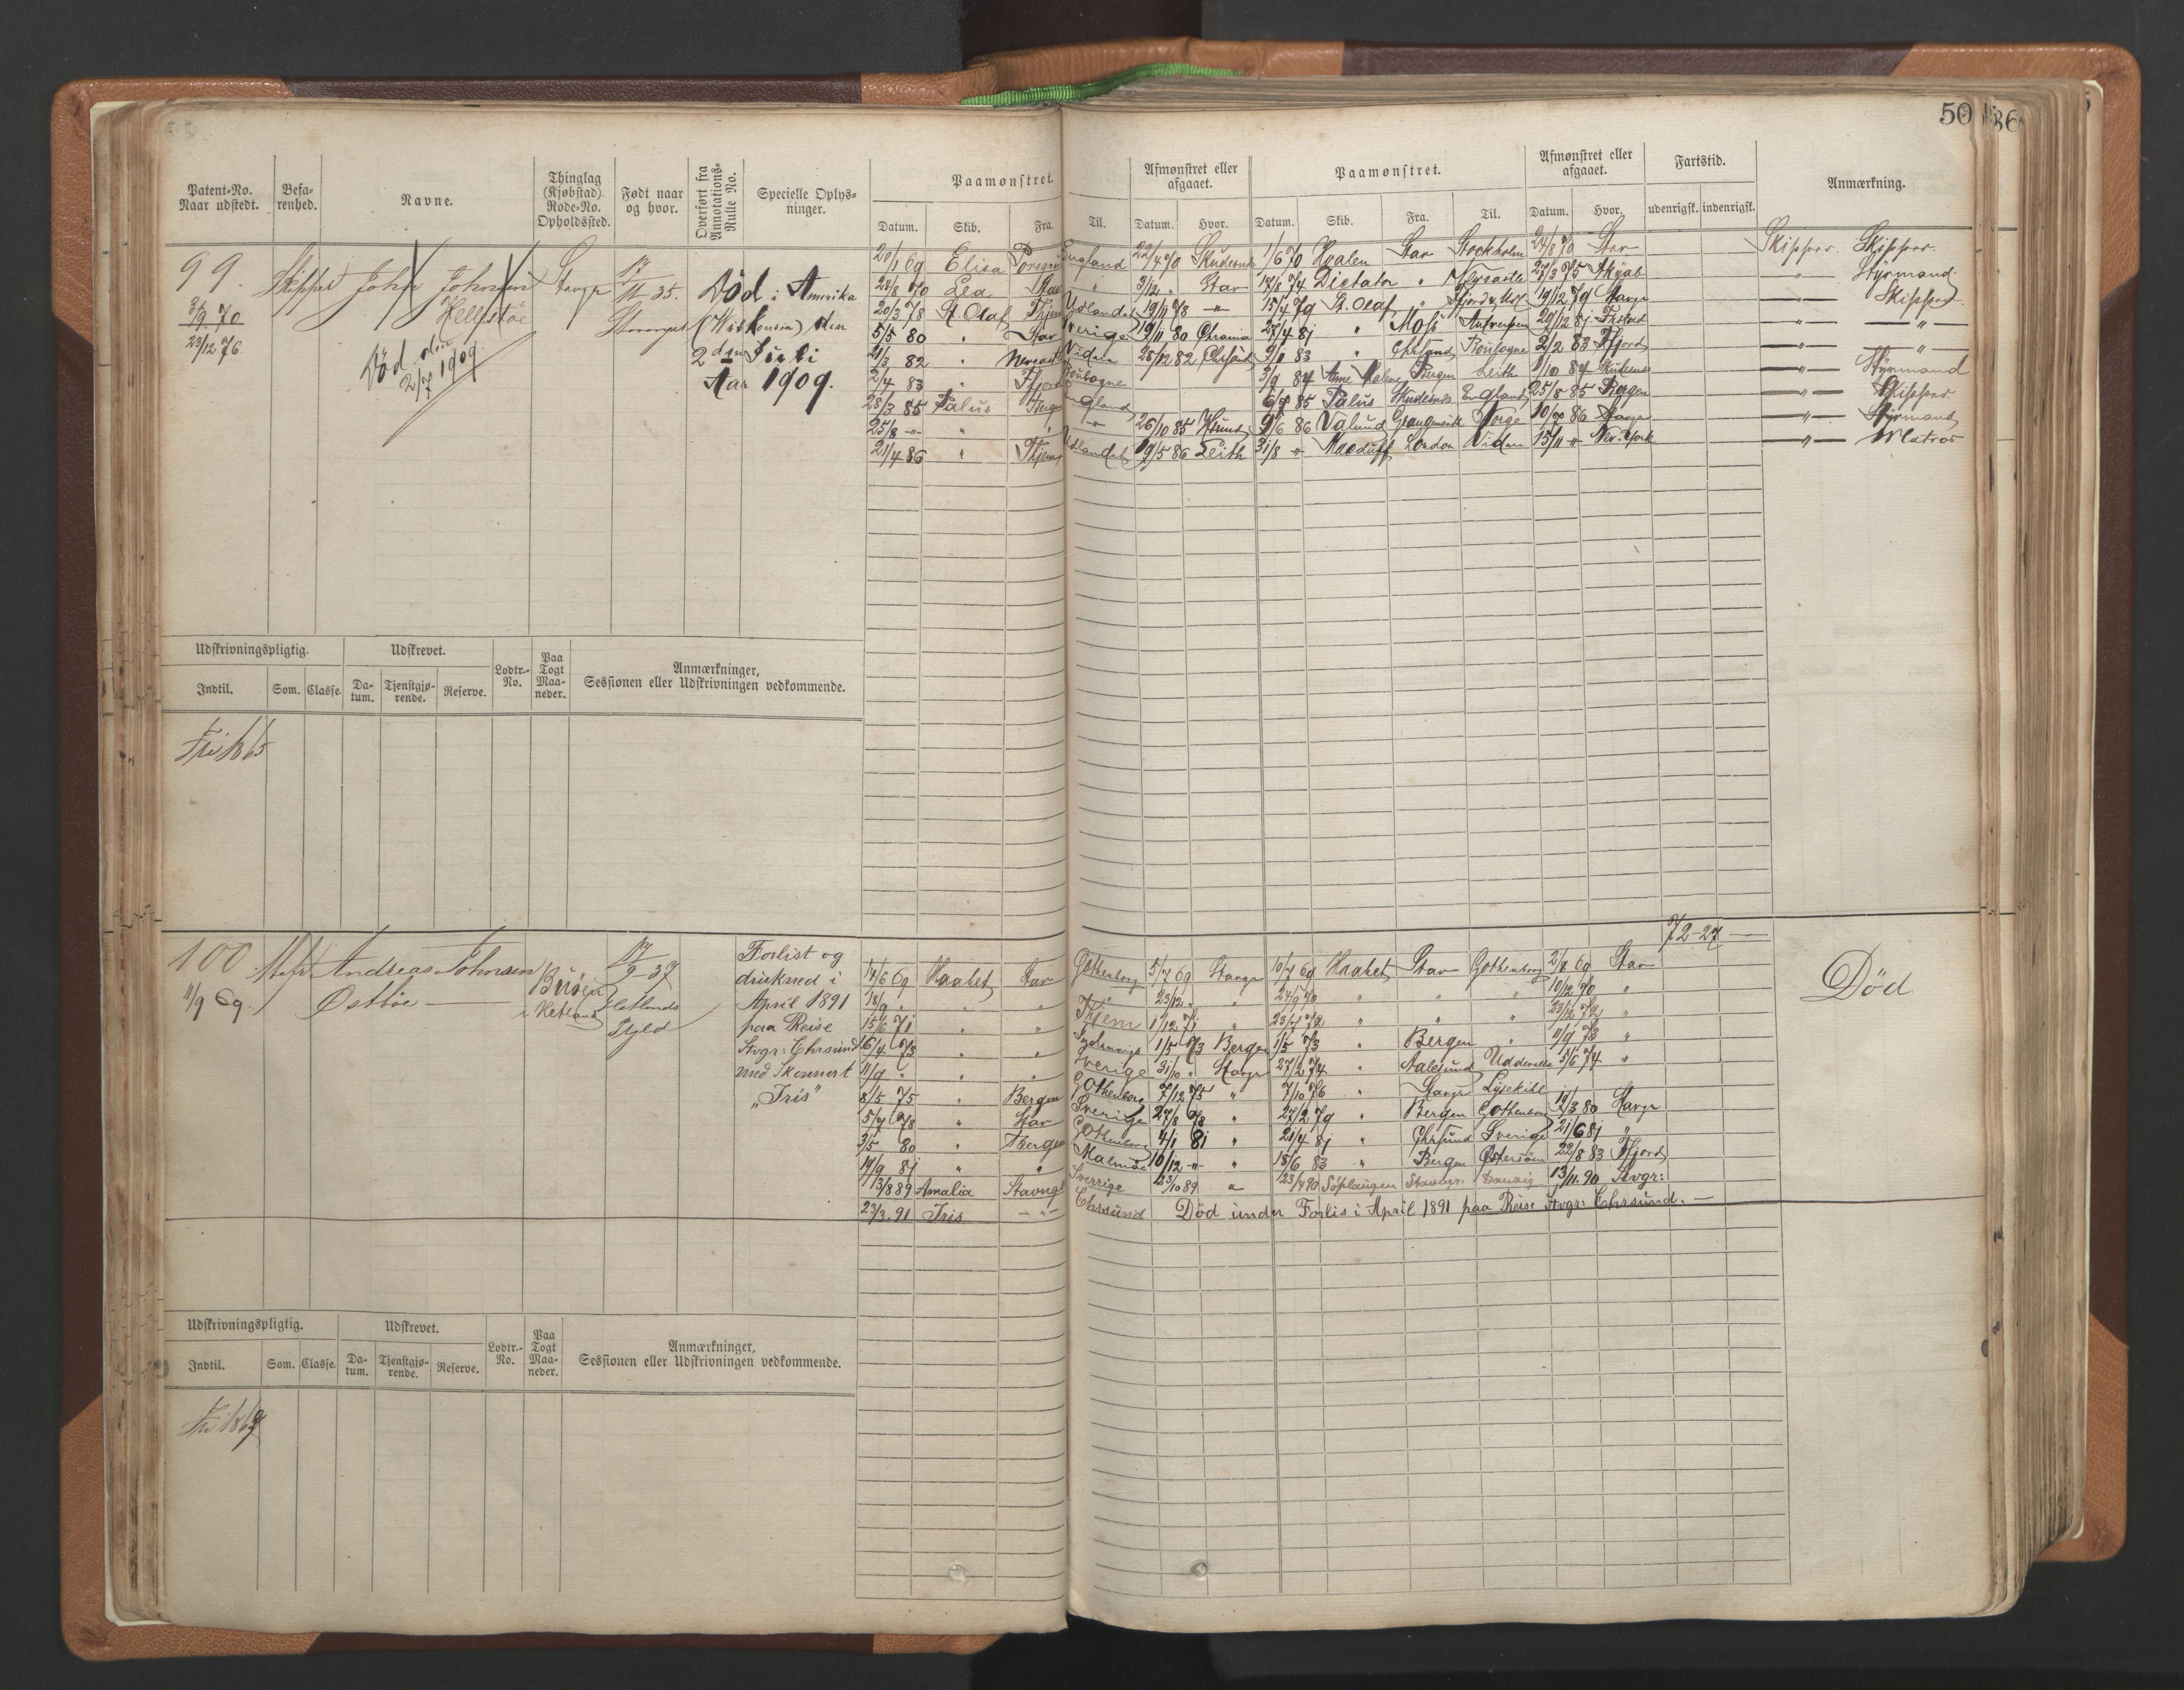 50
Patent-No. Naar udstedt.
Befa-renhed.
Navne.
Thinglag (Kjøbstad) Rode-No. Opholdssted.
Født naar og hvor.
Overført fra Annotations-Rulle No.
Specielle Oplys-ninger.
Paamønstret.
Afmønstret eller afgaaet.
Paamønstret.
Afmønstret eller afgaaet.
Fartstid.
Anmærkning.
Datum. Skib. Fra. Til. Datum. Hvor. Datum. Skib. Fra. Til. Datum. Hvor. udenrigsk. indenrigsk.
99.
3/9 70
23/12 76
Skipper John Johnsen
Hellestöe
Död den
2/7 1909.
Stavgr
17/11 35.
Död i Amerika
(Wiskonsin), den
2den Juli
Aar 1909.
20/1 69 Elisa England 22/4 70 Skudesnes 1/6 70 Svalen Stav Stockholm 24/8 70 Stav Skipper. Skipper.
24/8 70 Lea Stav " 3/12 " Stav 17/8 74 Dictator " 27/3 75 Akyab " Styrmand.
20/3 78 St. Olaf Udlandet 19/11 78 " 15/4 79 St. Olaf " 19/12 79 Stavgr " Skipper
5/5 80 " Stav Sverige 19/11 80 Chrania 27/4 81 " Moss Antwerpen 29/12 81 " "
21/3 82 " Newcastle Viden 28/12 82 Chrsand 9/1 83 " Chrsand Boulogne 2/2 83 Ffjord " "
2/4 83 " Ffjord Boulogne 3/9 84 Anne Malene Bergen Leith 1/10 84 Skudesnes " Styrmand
28/3 85 Palus Bergen England 6/7 85 Palus Skudesnes England 25/8 85 Bergen " Skipper
25/8 " " " " 26/10 85 9/6 86 Valund Norge 10/7 86 Stavgr " Styrmand
21/4 86 " Udlandet 19/5 86 Leith 31/8 " Macduff London Viden 15/11 " New-York " Matros
Udskrivningspligtig. Udskrevet. Lodtr.-No. Paa Togt Maa-neder. Anmærkninger, Sessionen eller Udskrivningen vedkommende.
Indtil. Som. Classe. Da-tum. Tjenstgjø-rende. Reserve.
Fri 1865
100
11/9 69.
Andreas Johnsen
Östböe
Buöen
i Hetland
17/9 37
Hetlands
Forlist og
drukned i
April 1891
paa Reise
Stvgr: Chrsund
med Skonnert
„Iris"
72-27
14/6 69 Haabet Stav Gothenborg 5/7 69 Stavgr 10/7 69 Haabet Stav Gothenborg 2/8 69 Stav
18/9 " " " 23/12 " " 27/9 70 " " " 10/12 70 "
15/6 71 " " 1/12 71 " 23/7 72 " " " 23/12 72 "
6/4 73 " " 1/5 73 Bergen 1/5 73 " Bergen " 11/9 73 "
11/9 " " " Sverige 31/10 " Stavgr 27/2 74 " Aalesund Uddevalla 5/6 74 "
8/5 75 " Bergen Gothenborg 7/12 75 " 7/10 76 " Stavgr Lysekihl
5/7 78 " Stav Sverige 27/8 78 " 27/2 79 " Bergen Gothenborg 19/3 80 Stavgr
3/5 80 " Bergen Gothenborg 4/1 81 " 21/4 81 " Chrsund Sverige 21/6 81 "
17/9 81 " " Malmöe 10/12 " " 15/6 83 " Bergen Östersöen 22/8 83 Ffjord
13/8 89 Amalia Stavngr Sverrige 23/10 89 " 23/4 90 Söplaugen Stavngr. Danzig 13/11. 90 Stvgr:
23/3. 91 Iris " Chrsund Död under Forlis i April 1891 paa Reise Stvgr: Chrsund.
Död
Udskrivningspligtig. Udskrevet. Lodtr.-No. Paa Togt Maa-neder. Anmærkninger, Sessionen eller Udskrivningen vedkommende.
Indtil. Som. Classe. Da-tum. Tjenstgjø-rende. Reserve.
Fri 1867